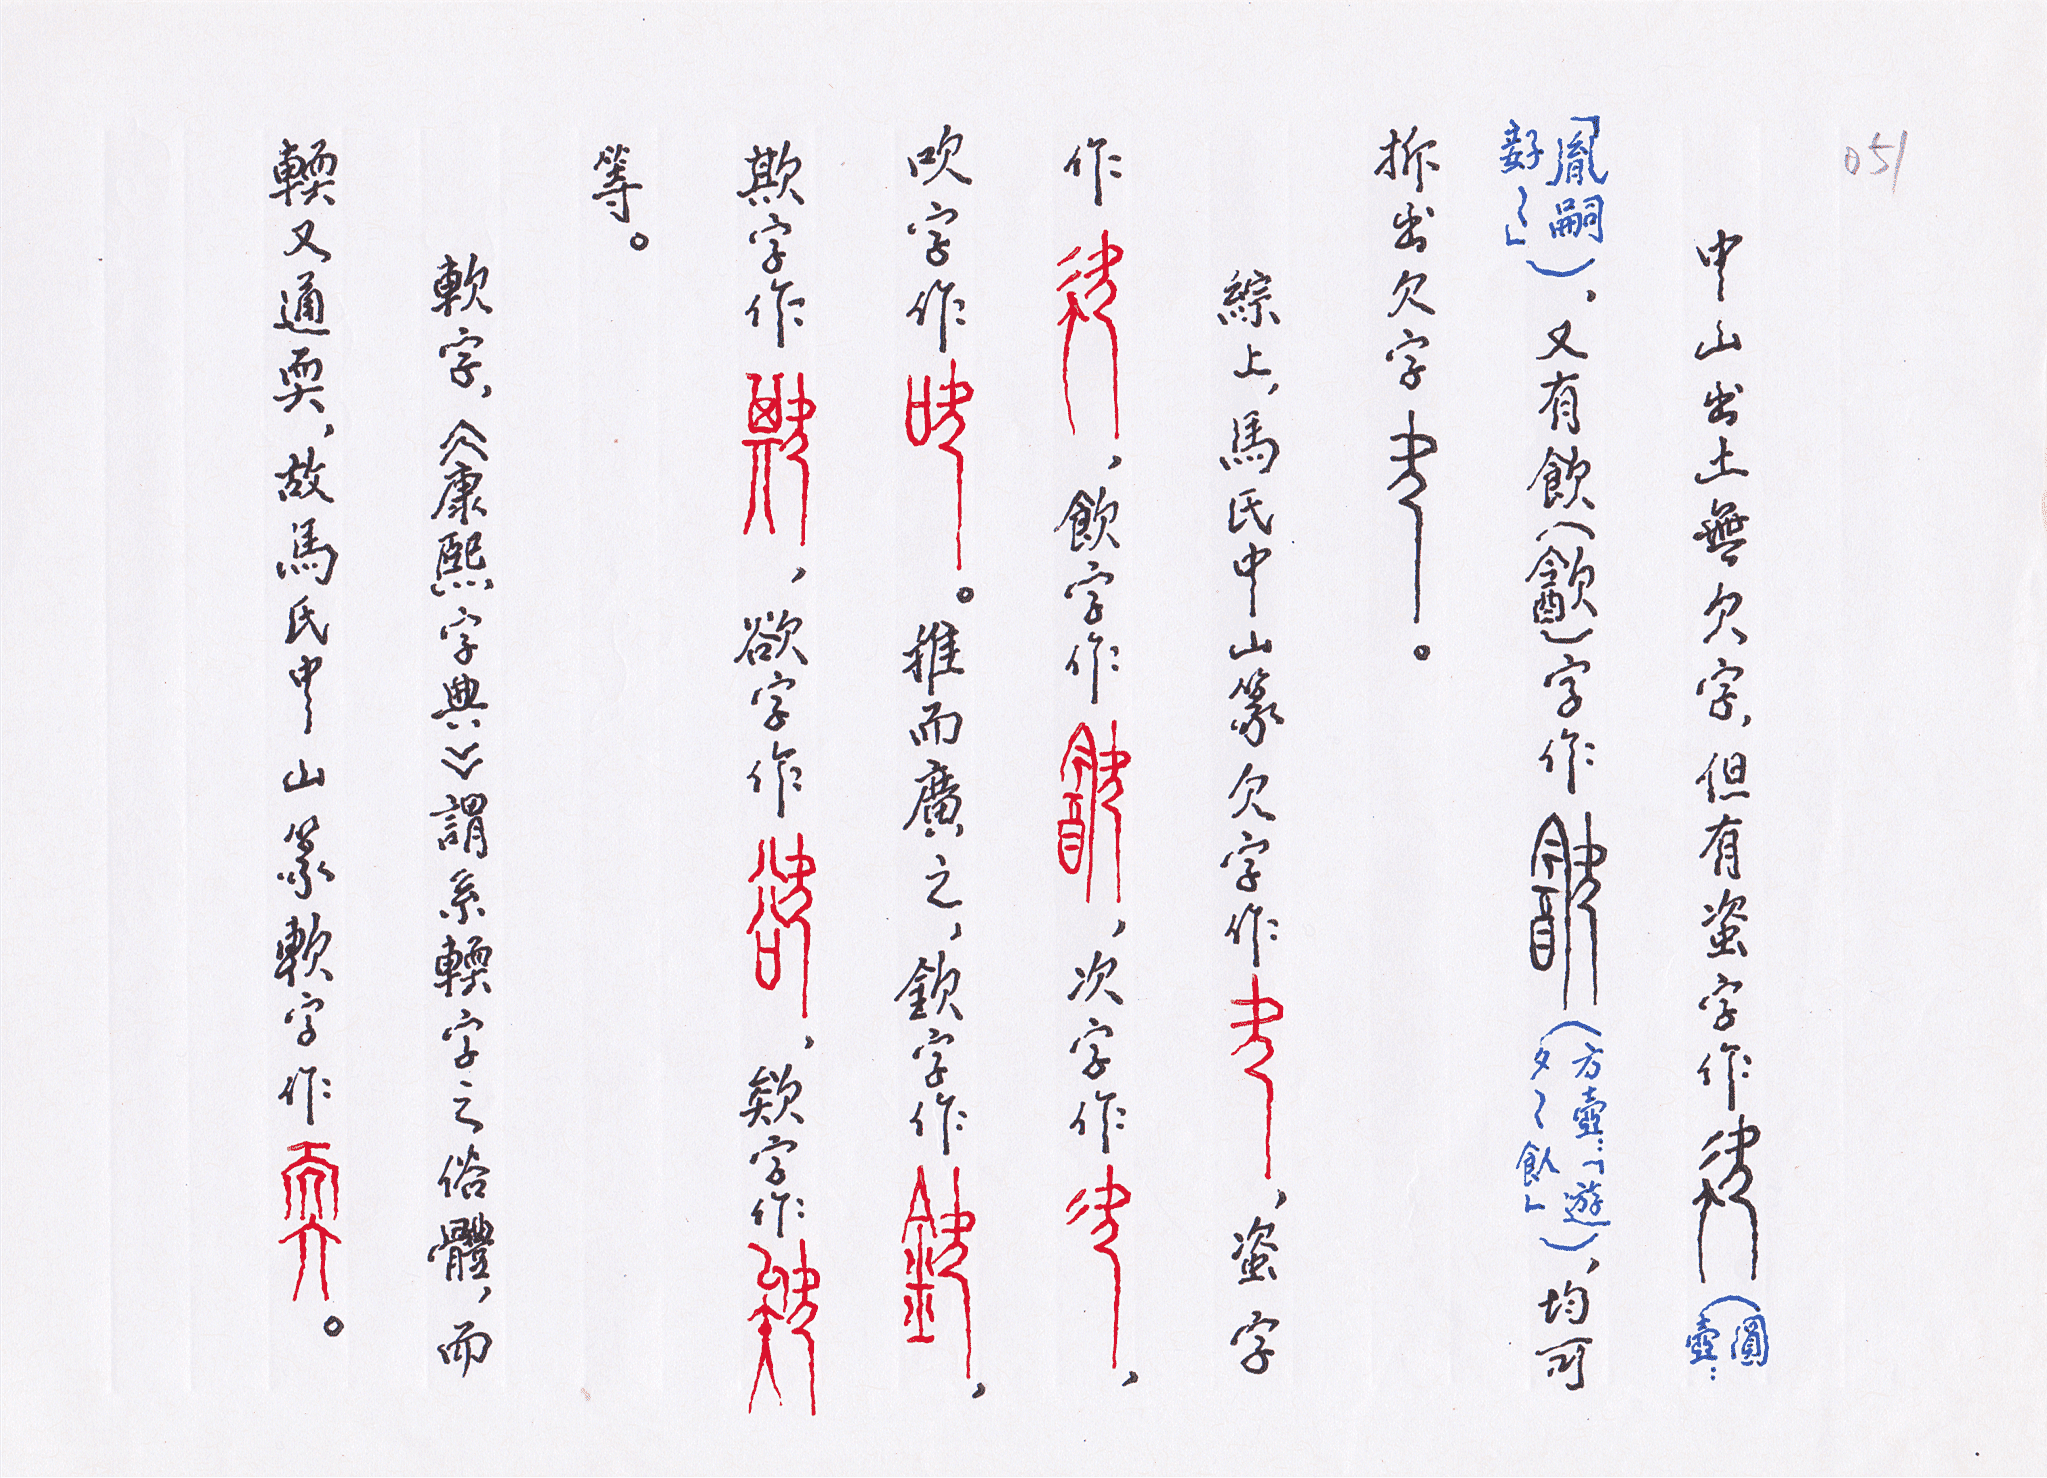 051
中山出土無欠字，但有盗字作（圓壺：
「胤嗣𡥨〻」），又有飲（㱃）字作（方壺：「遊夕〻飲」），均可
拆出欠字。
綜上，馬氏中山篆欠字作，盗字
作，飲字作，次字作，
吹字作。推而廣之，欽字作，
欺字作，欲字作，欸字作
等。
軟字，《康熙字典》謂系輭字之俗體，而
輭又通耎，故馬氏中山篆軟字作。